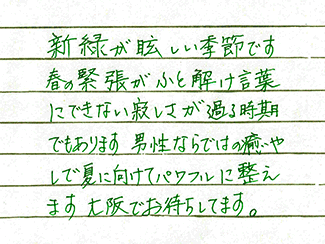 新緑が眩しい季節です
春の緊張がふと解け言葉
にできない寂しさが過る時期
でもあります 男性ならではの癒や
しで夏に向けてパワフルに整え
ます 大阪でお待ちしてます。